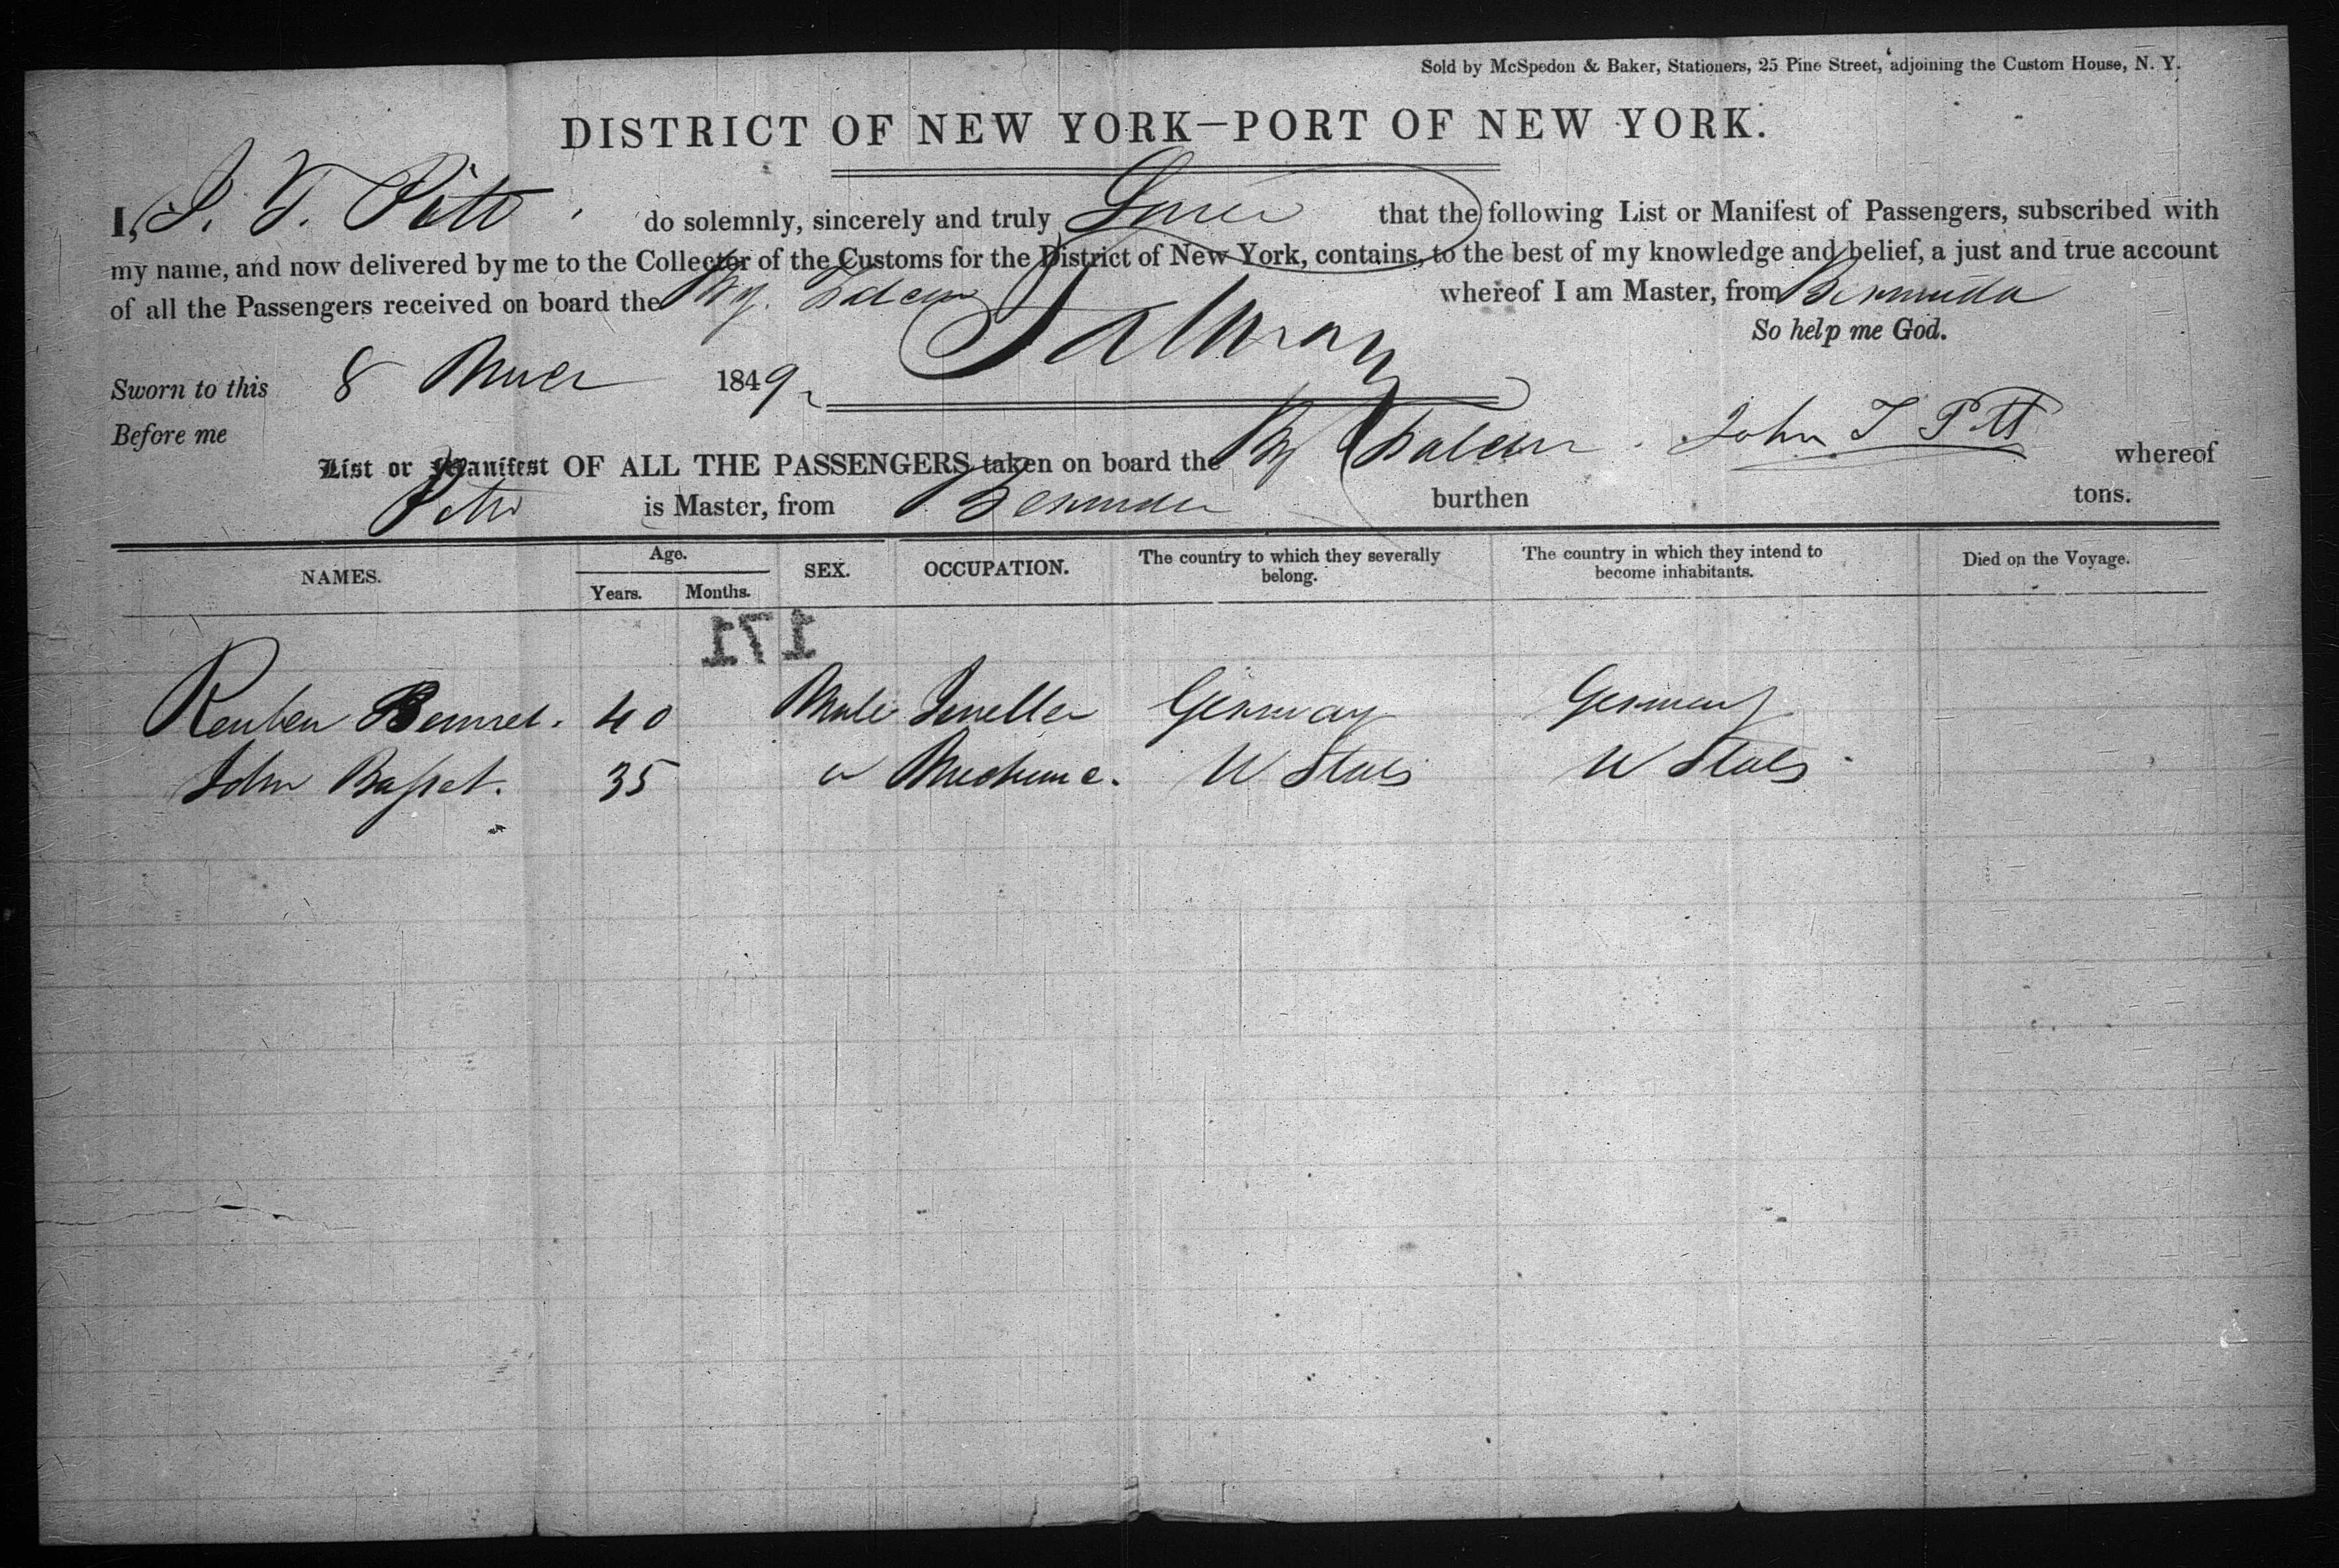 Sold by McSpedon & Baker, Stationers, 25 Pine Street, adjoining the Custom House, N. Y.
DISTRICT OF NEW YORK—PORT OF NEW YORK.
I, J. T. Pitt do solemnly, sincerely and truly that the following List or Manifest of Passengers, subscribed with
my name, and now delivered by me to the Collector of the Customs for the District of New York, contains, to the best of my knowledge and belief, a just and true account
of all the Passengers received on board the whereof I am Master, from Bermuda
So help me God.
Sworn to this 8 1849
Before me
John T Pitt
List or Manifest OF ALL THE PASSENGERS taken on board the whereof
Pitt is Master, from Bermuda burthen tons.
NAMES. Age. Years. Months. SEX. OCCUPATION. The country to which they severally belong. The country in which they intend to become inhabitants. Died on the Voyage.
171
Reuben 40 Male Jeweller Germany Germany
John Basset. 35 Mechanic. U States U States